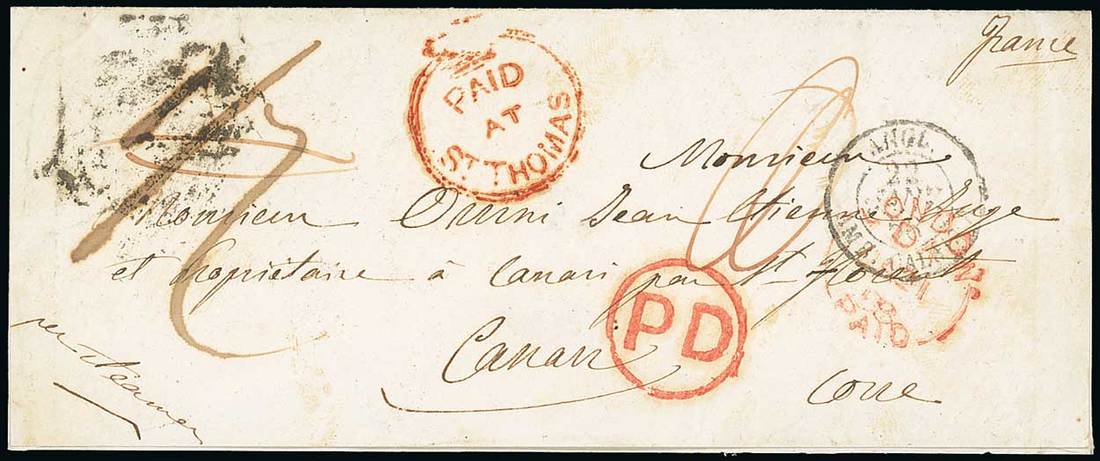 France
PAID
AT
ST THOMAS
Monsieur
Monsieur Orsini Jean Etienne Juge
et Propriétaire à Canari par St Florent
PD
Canari
Corse
per steamer
ANGL.
28
PAID